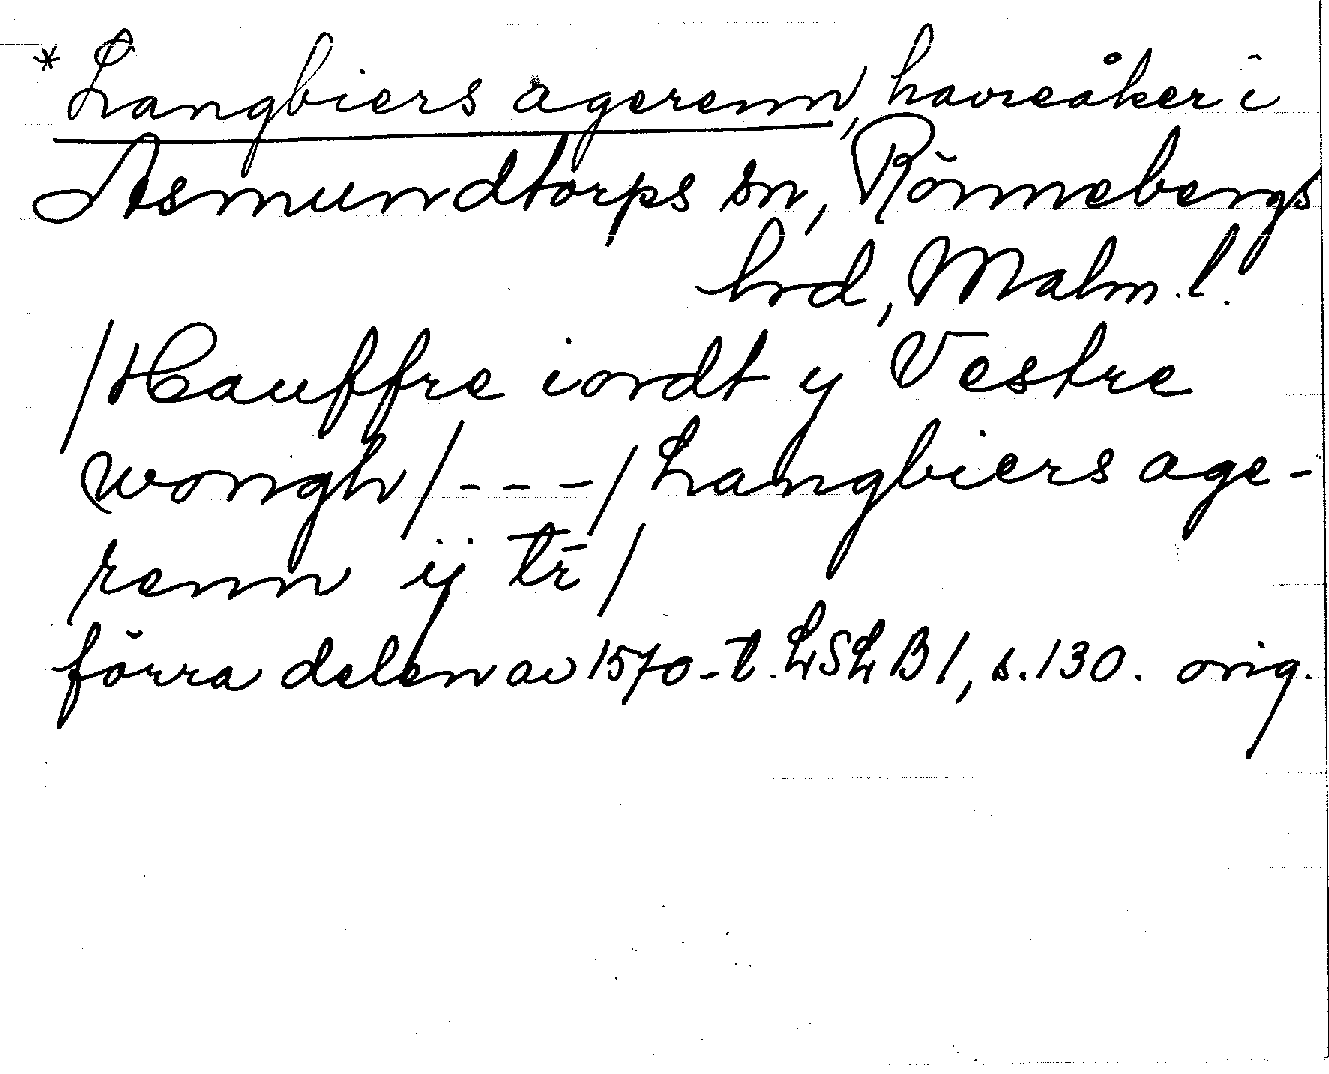 * Langbiers agerenn, havreåker i
Asmundtorps sn, Rönnebergs
hrd, Malm. l.
/Hauffre iordt y Vestre
wongh/---/Langbiers age-
renn ij tr̄/
förra delen av 1570-t. LSLB 1, s. 130. orig.